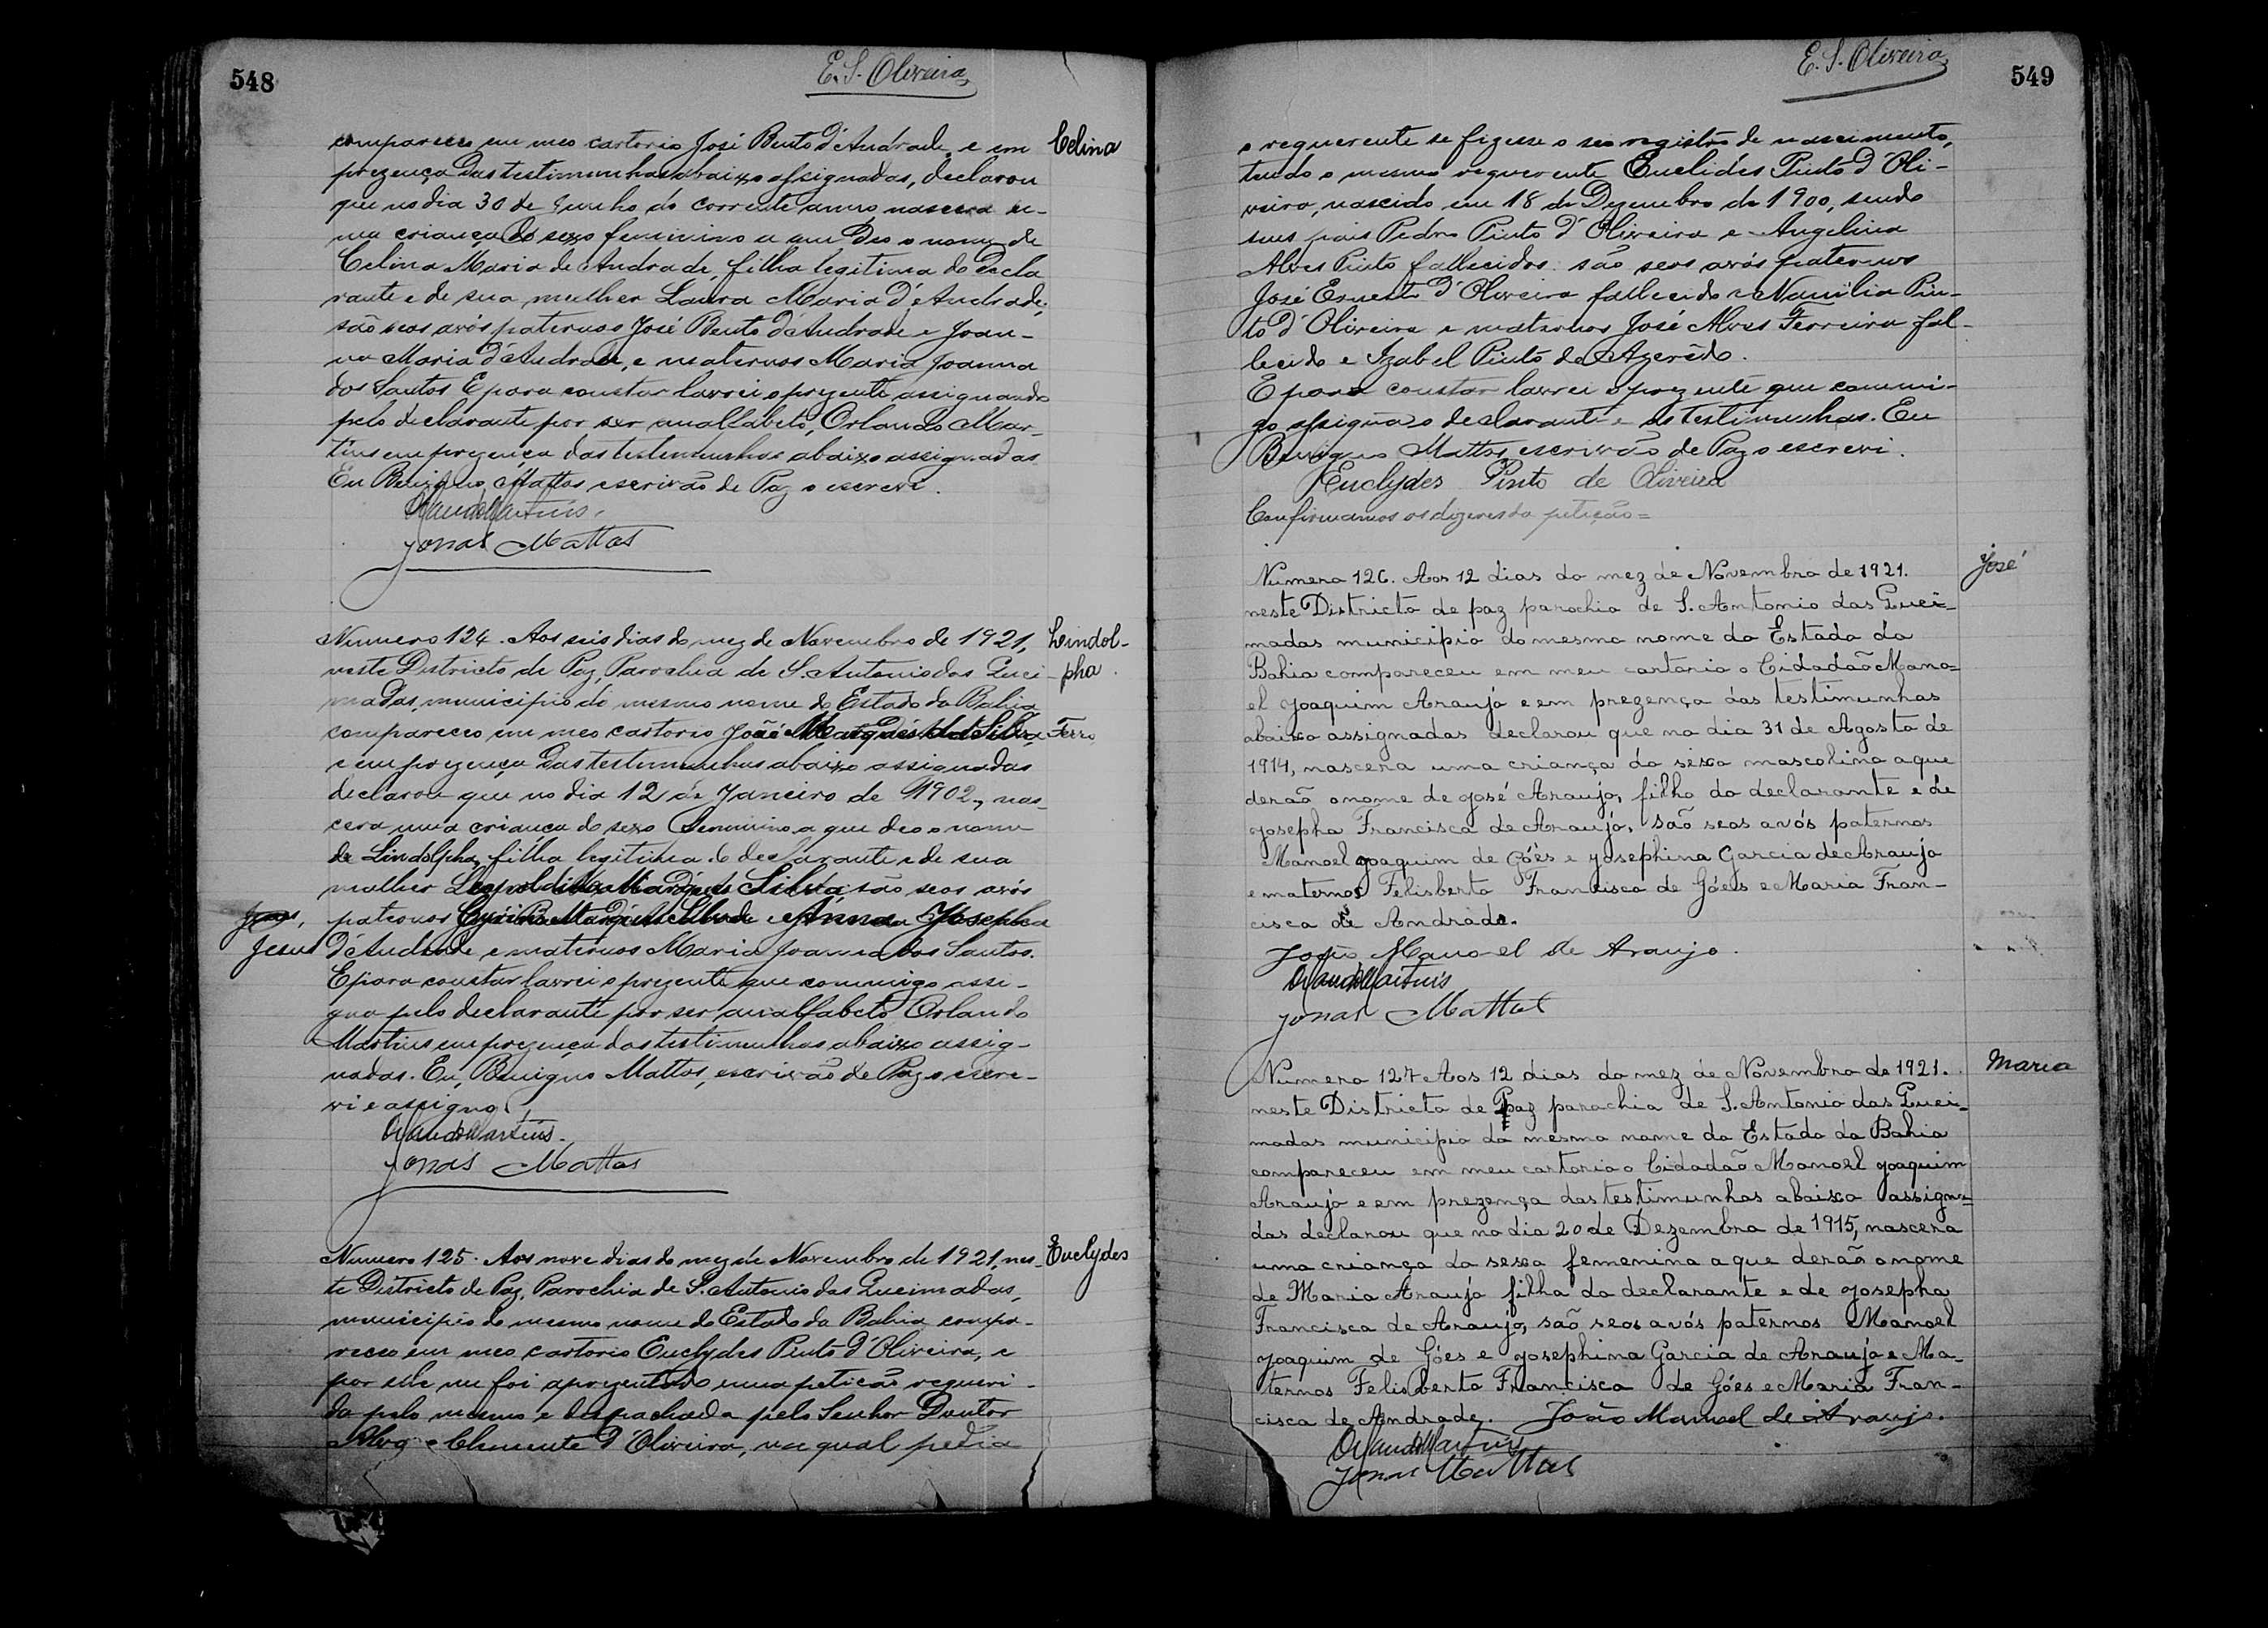 548
E. S. Oliveira
compareceo em meo cartorio José Bento d'Andrade e em
Celina
prezença das testimunhas abaixo assignadas, declarou
que no dia 30 de Junho do corrente anno nascera u-
ma criança do sexo feminino a que deo o nome de
Celina Maria de Andrade, filha legitima do decla
rante e de sua mulher Laura Maria d'Andrade;
são seos avós paternos José Bento d'Andrade e Joan-
na Maria d'Andrade, e maternos Maria Joanna
dos Santos E para constar lavrei o prezente assignando
pelo declarante por ser analfabeto, Orlando Mar-
tins em prezença das testemunhas abaixo assignadas
Eu Benigno Mattos escrivão de Paz o escrevi.
Orlando Martins.
Jonas Mattos
Numero 124. Aos seis dias do mez de Novembro de 1921,
Lindol-
neste Districto de Paz, Parochia de S. Antonio das Quei-
pha.
madas, municipio do mesmo nome do Estado da Bahia
compareceo em meo cartorio
Ferro
e em prezença das testemunhas abaixo assignadas
declarou que no dia 12 de Janeiro de 1902, nas-
cera uma criança do sexo feminino a que deo o nome
de Lindolpha, filha legitima do declarante e de sua
mulher Silva são seos avós
paternos e Anna Josepha
Jesus d'Andrade e maternos Maria Joanna dos Santos.
E para constar lavrei o prezente que commigo assi-
gna pelo declarante por ser analfabeto Orlando
Martins em prezença das testimunhas abaixo assig-
nadas. Eu, Benigno Mattos, escrivão de Paz o escre-
vi e assigno.
Orlando Martins.
Jonas Mattos
Numero 125. Aos nove dias do mez de Novembro de 1921, nes-
Euclydes
te Districto de Paz, Parochia de S. Antonio das Queimadas,
municipio do mesmo nome do Estado da Bahia compa-
receo em meo cartorio Euclydes Pinto d'Oliveira, e
por elle me foi aprezentado uma petição requeri-
da pelo mesmo e despachada pelo Senhor Doutor
Clemente d'Oliveira, na qual pedia
E. S. Oliveira
549
o requerente se fizesse o seo registro de nascimento,
tendo o mesmo requerente Euclides Pinto d'Oli-
veira, nascido em 18 de Dezembro de 1900, sendo
seus pais Pedro Pinto d'Oliveira e Angelina
Alves Pinto fallecidos: são seos avós paternos
José Ernesto d'Oliveira fallecido e Pin-
to d'Oliveira e maternos José Alves Ferreira fal-
lecido e Izabel Pinto de Azerêdo.
E para constar lavrei o prezente que commi-
go assigna o declarante e as testimunhas. Eu
Benigno Mattos escrivão de Paz o escrevi.
Euclydes Pinto de Oliveira
Confirmamos os dizeres da petição =
Numero 126. Aos 12 dias do mez de Novembro de 1921.
José
neste Districto de paz parochia de S. Antonio das Quei-
madas municipio do mesmo nome do Estado da
Bahia compareceu em meu cartorio o Cidadão Mano-
el Joaquim Araujo e em prezença das testimunhas
abaixo assignadas declarou que no dia 31 de Agosto de
1914, nascera uma criança do sexo mascolino a que
derão o nome de José Araujo, filho do declarante e de
Josepha Francisca de Araujo, são seos avós paternos
Manoel Joaquim de Góes e Josephina Garcia de Araujo
e maternos Felisberto Francisco de Góes e Maria Fran-
cisca de Andrade.
João Manoel de Araujo.
Orlando Martins
Jonas Mattos
Numero 127 Aos 12 dias do mez de Novembro de 1921.
Maria
neste Districto de Paz parochia de S. Antonio das Quei-
madas municipio do mesmo nome do Estado da Bahia
compareceu em meu cartorio o Cidadão Manoel Joaquim
Araujo e em prezença das testimunhas abaixo assigna-
das declarou que no dia 20 de Dezembro de 1915, nascera
uma criança do sexo femenina a que derão o nome
de Maria Araujo filha do declarante e de Josepha
Francisca de Araujo, são seos avós paternos Manoel
Joaquim de Góes e Josephina Garcia de Araujo e Ma-
ternos Felisberto Francisco de Góes e Maria Fran-
cisca de Andrade. João Manoel de Araujo.
Orlando Martins
Jonas Mattos